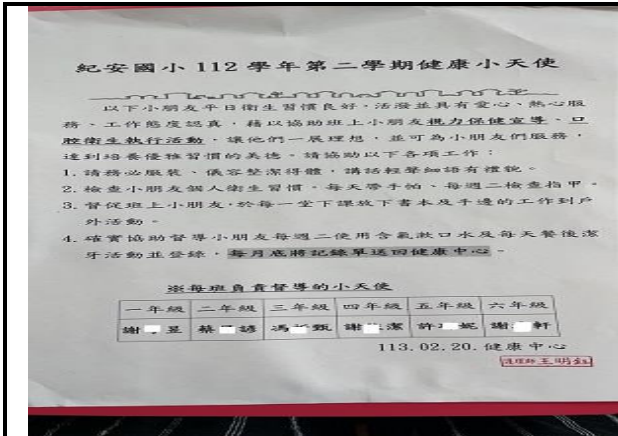 紀安國小 112 學年第二學期健康小天使
以下小朋友平日衛生習慣良好,活潑並具有愛心、熱心服
務、工作態度認真,藉以協助班上小朋友視力保健宣導、口
腔衛生執行活動,讓他們一展理想,並可為小朋友們服務,
達到培養優雅習慣的美德。請協助以下各項工作:
1. 請務必服裝、儀容整潔得體,講話輕聲細語有禮貌。
2. 檢查小朋友個人衛生習慣,每天帶手帕、每週二檢查指甲。
3. 督促班上小朋友,於每一堂下課放下書本及手邊的工作到戶
外活動。
4. 確實協助督導小朋友每週二使用含氟漱口水及每天餐後潔
牙活動並登錄,每月底將記錄單送回健康中心。
每班負責督導的小天使
一年級 二年級 三年級 四年級 五年級 六年級
謝 昱 蔡 諺 馮 甄 謝 潔 許 妮 謝 軒
113.02.20. 健康中心
護理師 王明鈺